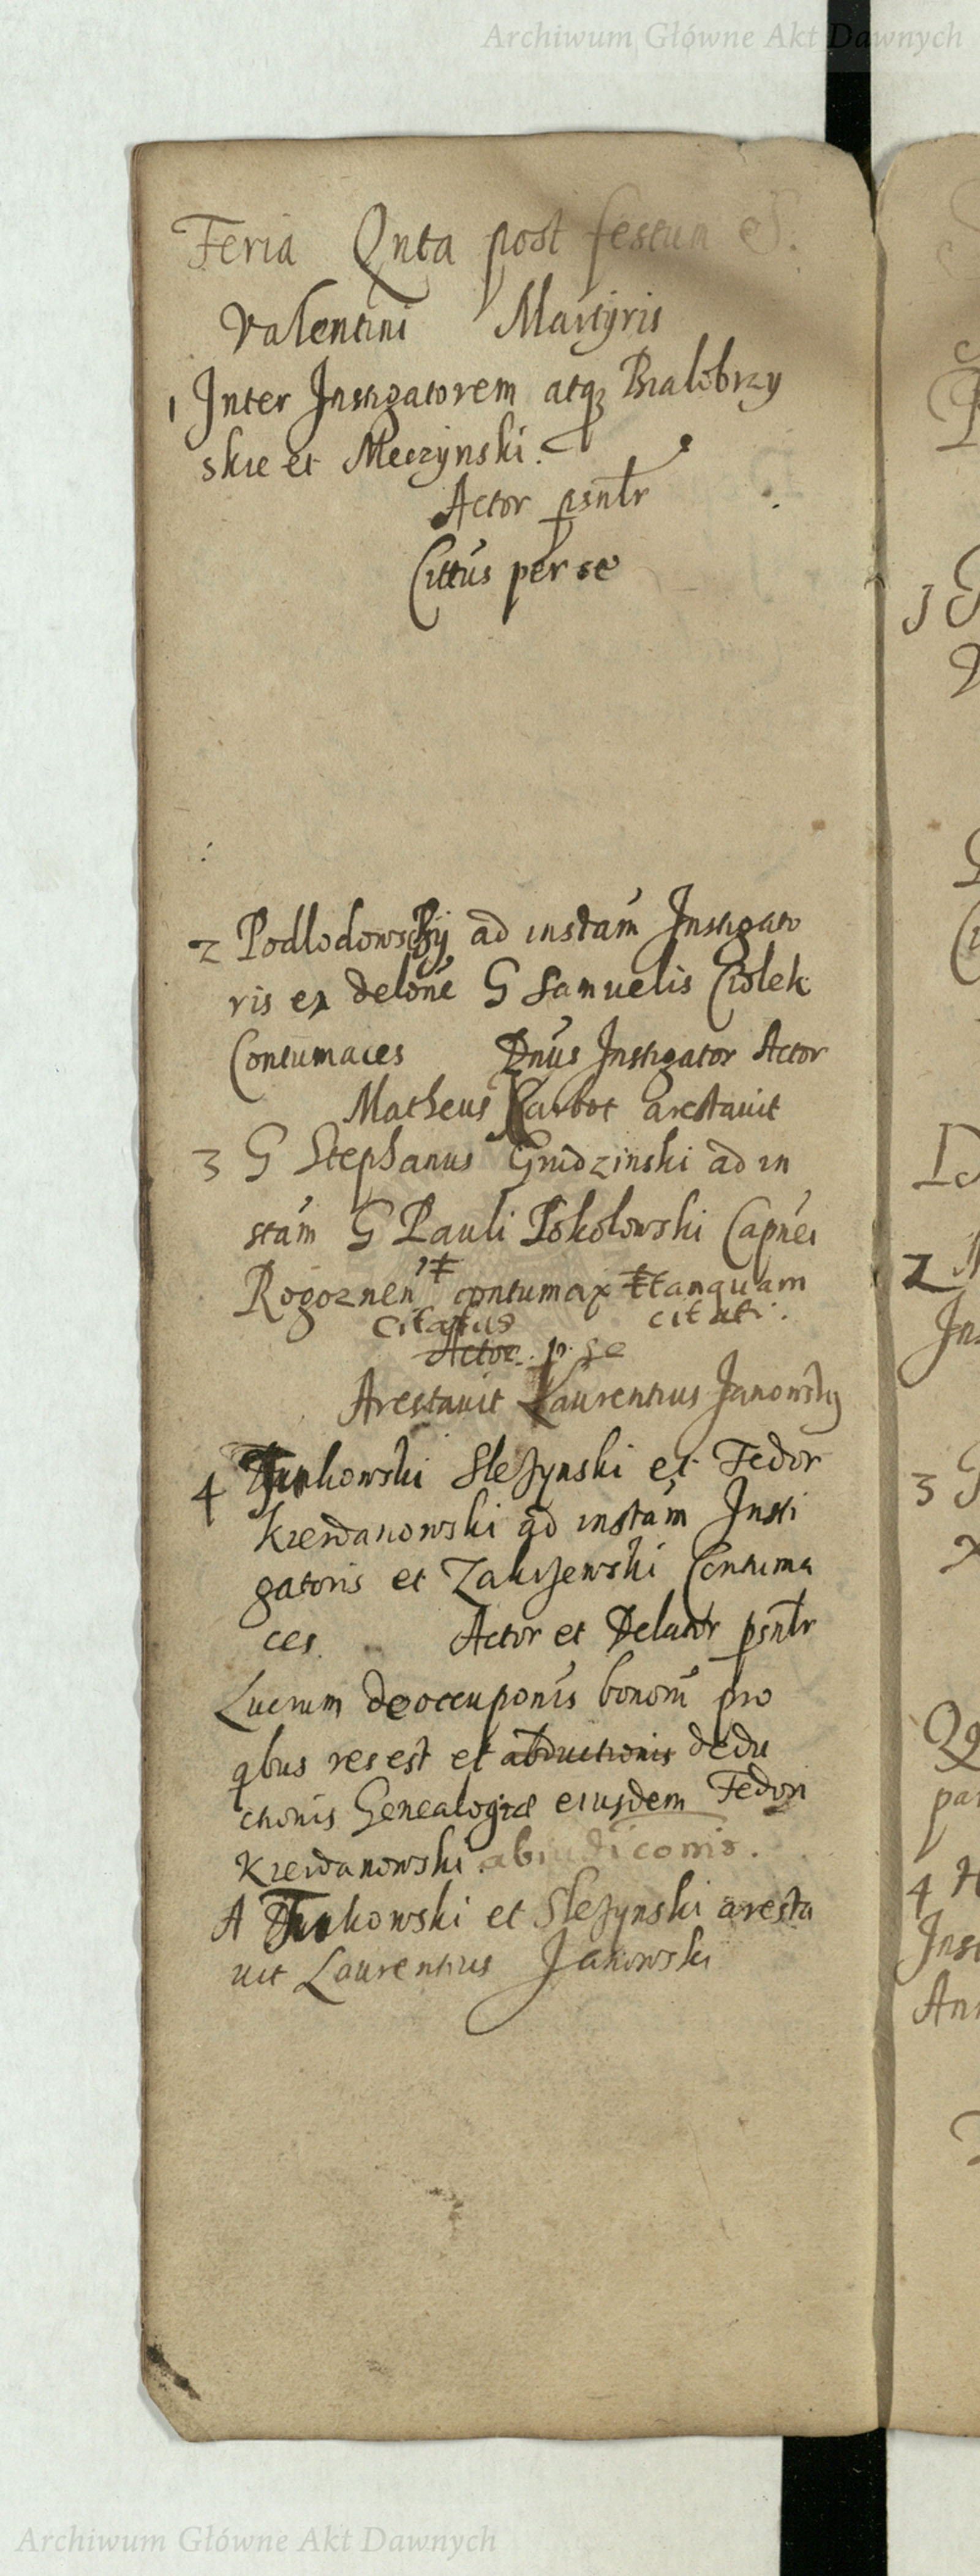 Archiwum Główne Akt Dawnych
Feria Qnta post festum S.
Valentini Martyris
1 Inter Instigatorem atqз Bialobrzy
skie et Meczynski.
Actor psntr
Cittus per se
2 Podlodowscÿ ad instam Instigato
ris ex delone G Samuelis Ciolek
Contumaces Dnus Instigator Actor
Matheus Karbot arestauit
3 G Stephanus Grudzinski ad in
stam G Pauli Pokolowski Capnei
Rogoznen contumax tanquam
Citatus citati.
Actor p. se
Arestauit Laurentius Janowsky
4 Turkowski Slesynski et Fedor
Kierdanowski ad instam Insti
gatoris et Zakrzewski Contuma
ces. Actor et Delator psntr
Lucrum deoccuponis bonoru pro
qbus res est et abductionis dedu
ctionis Genealogiæ eiusdem Fedori
Kierdanowski. abiudiconis.
A Turkowski et Slesynski aresta
uit Laurentius Janowski
Archiwum Główne Akt Dawnych